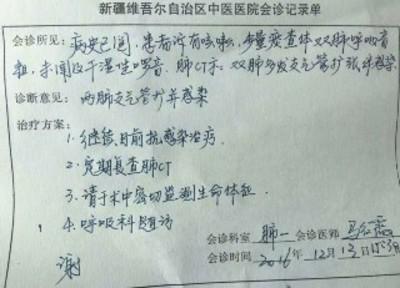 新疆维吾尔自治区中医医院会诊记录单
会诊所见：病史已阅，患者诉有咳嗽，少量痰查体双肺呼吸音
粗，未闻及干湿性啰音．肺CT示：双肺多发支气管扩张并感染．
诊断意见：两肺支气管扩并感染
治疗方案：
1．继续目前抗感染治疗．
2．定期复查肺CT
3．请于术中密切监测生命体征．
4．呼吸科随访
会诊科室 肺一 会诊医师
谢
会诊时间 2016年 12月 13日